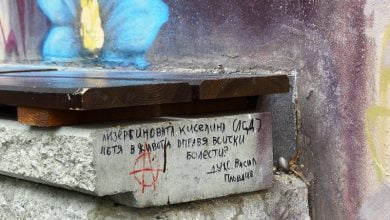 ЛИЗЕРГИНОВАТА КИСЕЛИНА (ЛСД)
ПЪТЯ В ЖИВОТА ОПРАВЯ ВСИЧКИ
БОЛЕСТИ?
ДУХС. ВАСИЛ
ПЛОВДИВ